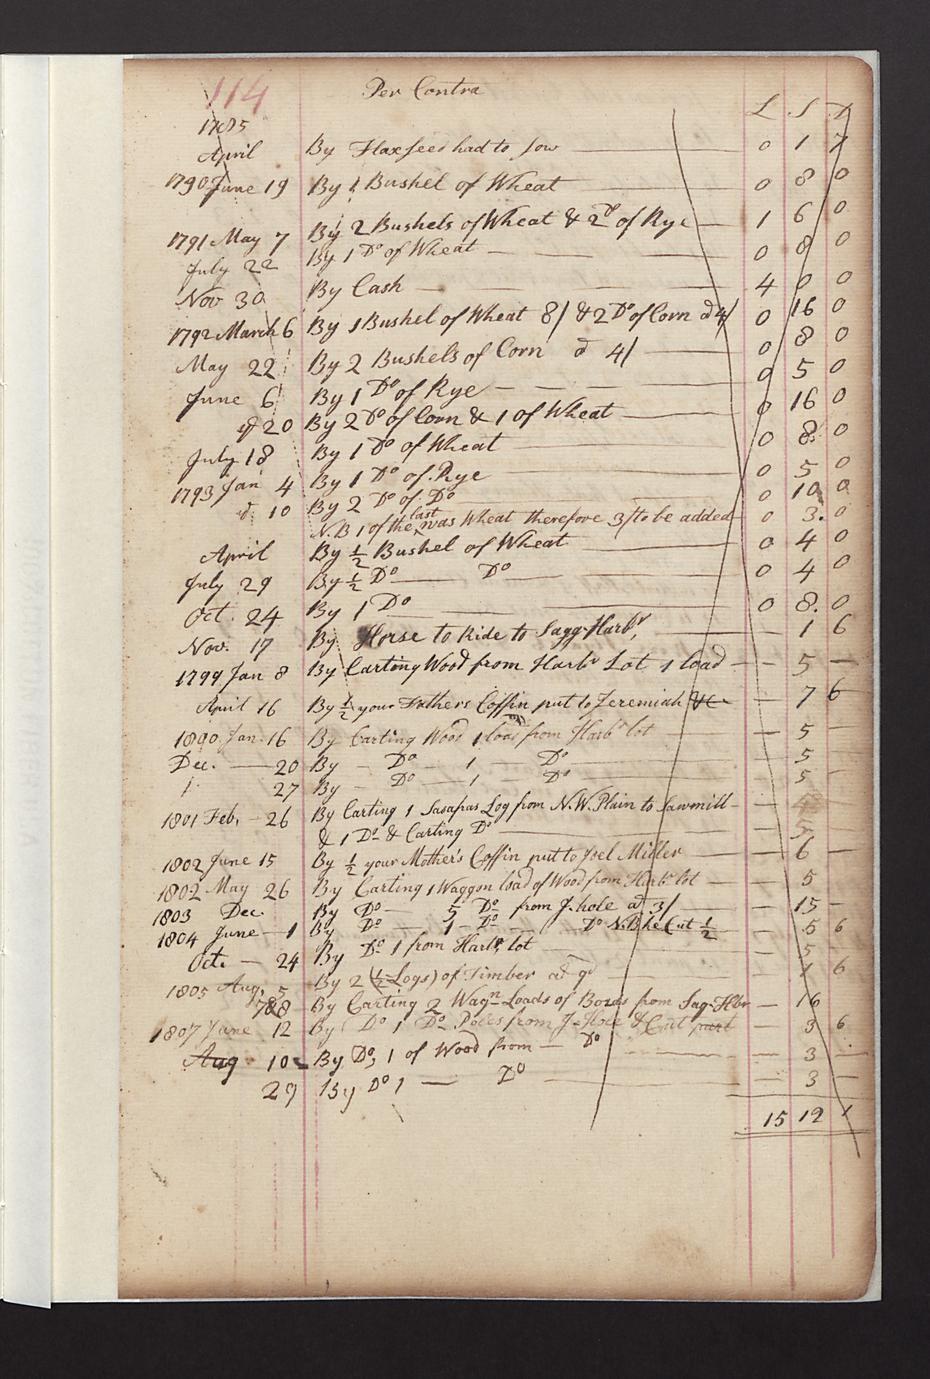 114 Per Contra
L S D
1785
April By Flaxseed had to Sow 0 1 7
1790 June 19 By 1 Bushel of Wheat 0 8 0
By 2 Bushels of Wheat & 2 Do of Rye 1 6 0
1791 May 7 By 1 Do of Wheat 0 8 0
July 22
Nov 30 By Cash 4 0 0
1792 March 6 By 1 Bushel of Wheat 8/ & 2 Do of Corn @ 4/ 0 16 0
May 22 By 2 Bushels of Corn @ 4/ 0 8 0
June 6 By 1 Do of Rye 0 5 0
20 By 2 Do of Corn & 1 of Wheat 0 16 0
July 18 By 1 Do of Wheat 0 8 0
1793 Jan 4 By 1 Do of Rye 0 5 0
10 By 2 Do of Do 0 10 0
N.B 1 of the last was Wheat therefore 3/ to be added 0 3 0
April By 1/2 Bushel of Wheat 0 4 0
July 29 By 1/2 Do Do 0 4 0
Oct. 24 By 1 Do 0 8 0
Nov. 17 By Horse to Ride to Sagg-Harbr, 1 6
1799 Jan 8 By Carting Wood from Harbr Lot 1 load 5
April 16 By 1/2 your Fathers Coffin put to Jeremiah &c 7 6
1800 Jan. 16 By Carting Wood 1 load from Harbr lot 5
Dec. 20 By Do 1 Do 5
27 By Do 1 Do 5
1801 Feb. 26 By Carting 1 Sasapas Log from N.W. Plain to Sawmill
& 1 Do & Carting Do 5
1802 June 15 By 1/2 your Mother's Coffin put to Joel Miller 6
1802 May 26 By Carting 1 Waggon load of Wood from Harbr lot 5
1803 Dec. By Do 5 Do from J-hole at 3/ 15
1804 June 1 By Do 1 Do Do N.B he Cut 1/2 5 6
Oct. 24 By Do 1 from Harbr lot 5
1805 Aug. 5 By 2 (1/2 Logs) of Timber at 9d 1 6
7&8 By Carting 2 Wagn Loads of Bords from Sag-Hbr 16
1807 June 12 By Do 1 Do Poles from J-Hole & Cut part 3 6
Aug 10 By Do, 1 of Wood from Do 3
29 By Do 1 Do 3
15 12 1